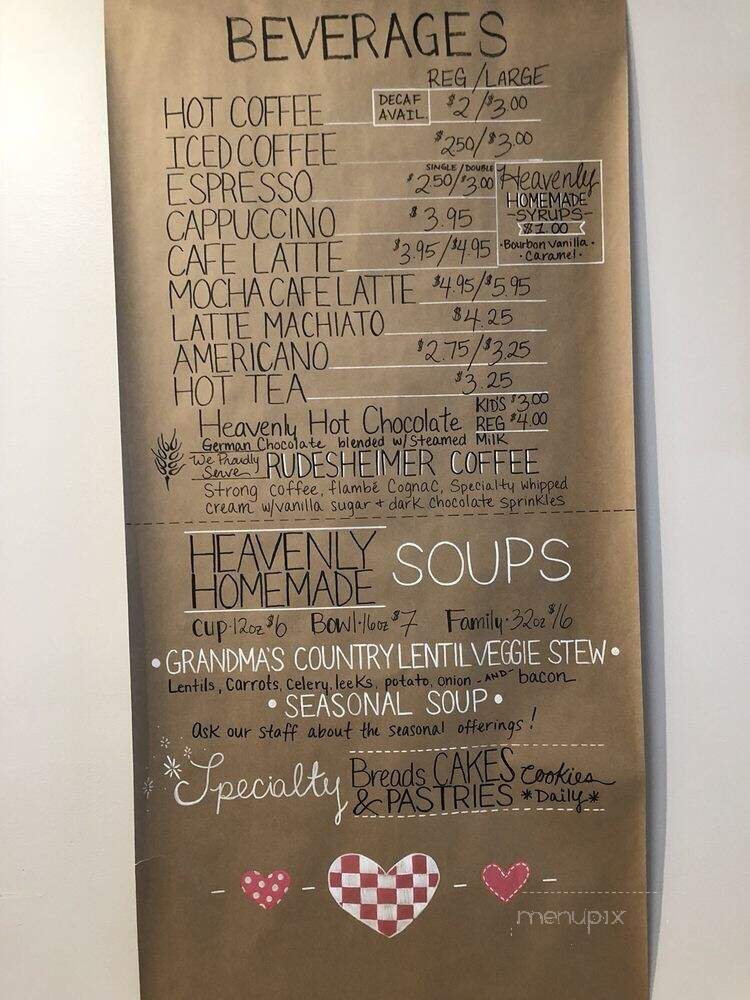 BEVERAGES
REG/LARGE
HOT COFFEE DECAF AVAIL. $2/$3.00
ICED COFFEE $2.50/$3.00
SINGLE/DOUBLE
ESPRESSO $2.50/$3.00
CAPPUCCINO $3.95
CAFE LATTE $3.95/$4.95
Heavenly
HOMEMADE
-SYRUPS-
$1.00
•Bourbon Vanilla•
•Caramel•
MOCHA CAFE LATTE $4.95/$5.95
LATTE MACHIATO $4.25
AMERICANO $2.75/$3.25
HOT TEA $3.25
Heavenly Hot Chocolate KID'S $3.00
REG $4.00
German Chocolate blended w/Steamed Milk
We Proudly Serve RUDESHEIMER COFFEE
Strong coffee, flambé Cognac, Specialty whipped
cream w/vanilla sugar + dark chocolate sprinkles
HEAVENLY
HOMEMADE SOUPS
CUP·12oz $6 Bowl·16oz $7 Family·32oz $16
•GRANDMA'S COUNTRY LENTIL VEGGIE STEW•
Lentils, Carrots, Celery, leeks, potato, onion -AND- bacon
•SEASONAL SOUP•
Ask our staff about the seasonal offerings!
Specialty Breads CAKES Cookies
& PASTRIES *Daily*
menupix